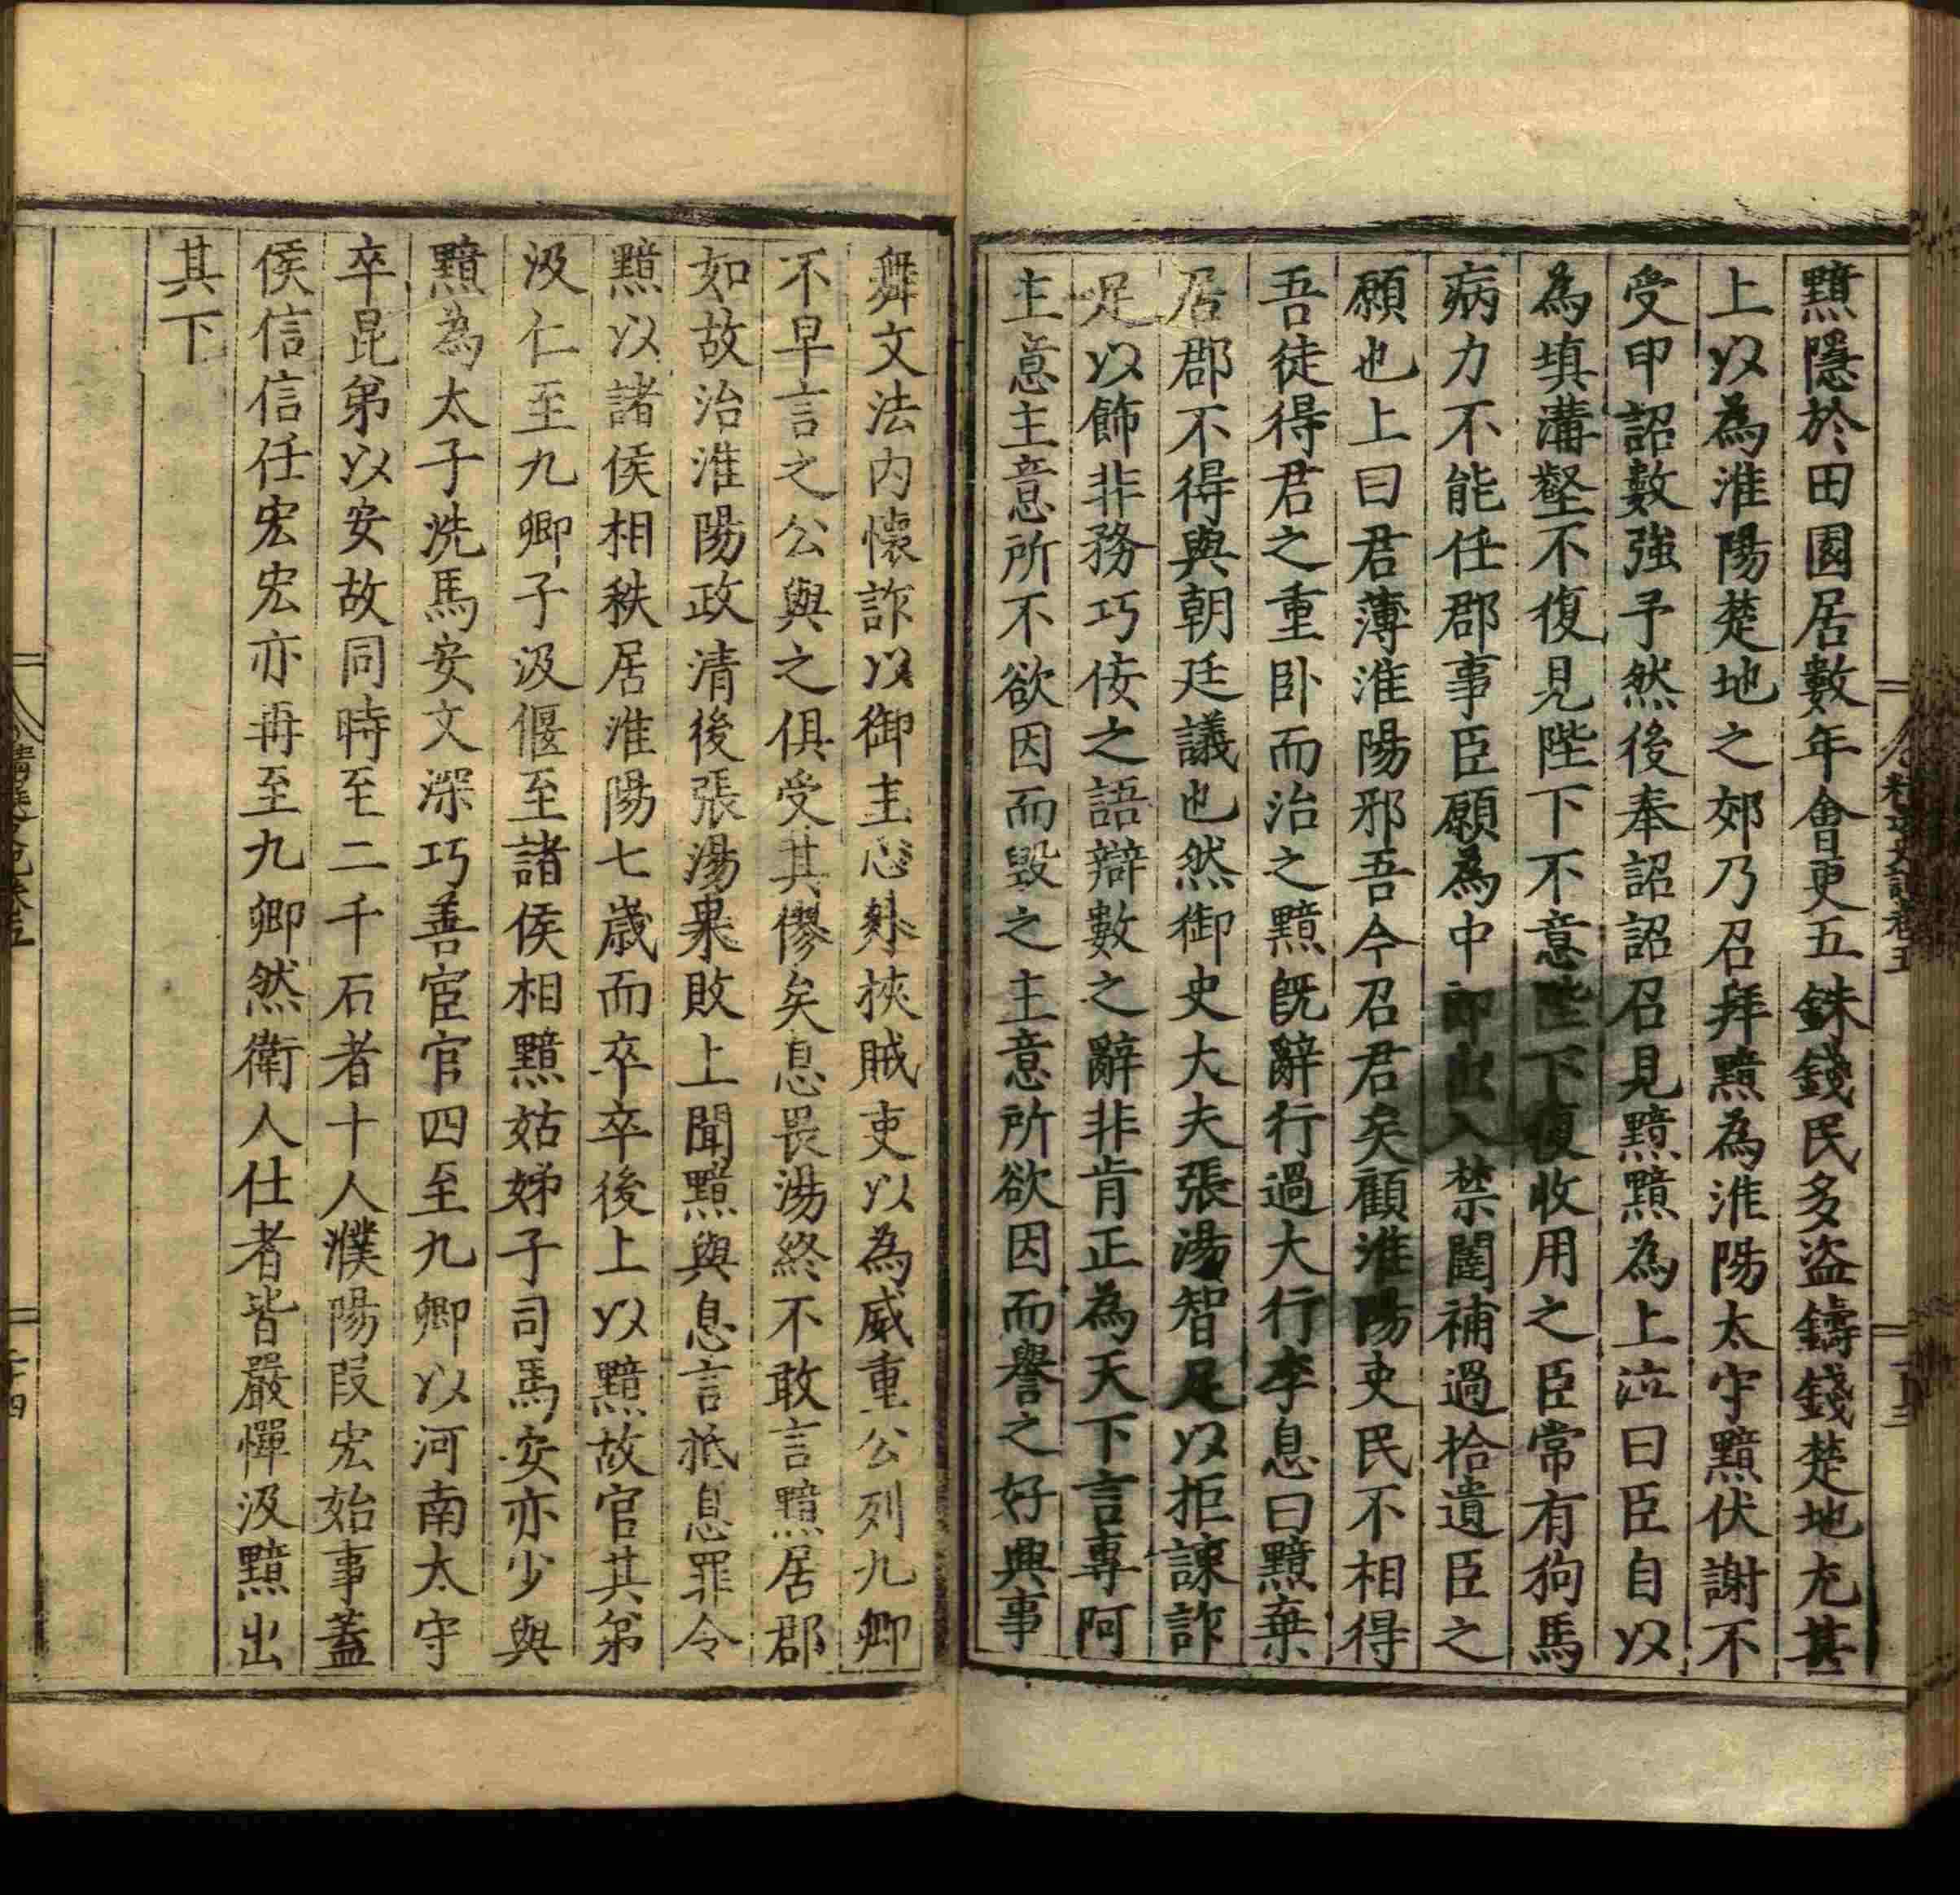 黯隱於田園居數年會更五銖錢民多盜鑄錢楚地尤甚
上以為淮陽楚地之郊乃召拜黯為淮陽太守黯伏謝不
受印詔數強予然後奉詔詔召見黯黯為上泣曰臣自以
為填溝壑不復見陛下不意陛下復收用之臣常有狗馬
病力不能任郡事臣願為中郎出入禁闥補過拾遺臣之
願也上曰君薄淮陽邪吾今召君矣顧淮陽吏民不相得
吾徒得君之重臥而治之黯既辭行過大行李息曰黯棄
居郡不得與朝廷議也然御史大夫張湯智足以拒諫詐
足以飾非務巧佞之語辯數之辭非肯正為天下言專阿
主意主意所不欲因而毀之主意所欲因而譽之好興事
舞文法內懷詐以御主心外挾賊吏以為威重公列九卿
不早言之公與之俱受其僇矣息畏湯終不敢言黯居郡
如故治淮陽政清後張湯果敗上聞黯與息言抵息罪令
黯以諸侯相秩居淮陽七歲而卒卒後上以黯故官其弟
汲仁至九卿子汲偃至諸侯相黯姑姊子司馬安亦少與
黯為太子洗馬安文深巧善宦官四至九卿以河南太守
卒昆弟以安故同時至二千石者十人濮陽段宏始事蓋
侯信信任宏宏亦再至九卿然衛人仕者皆嚴憚汲黯出
其下